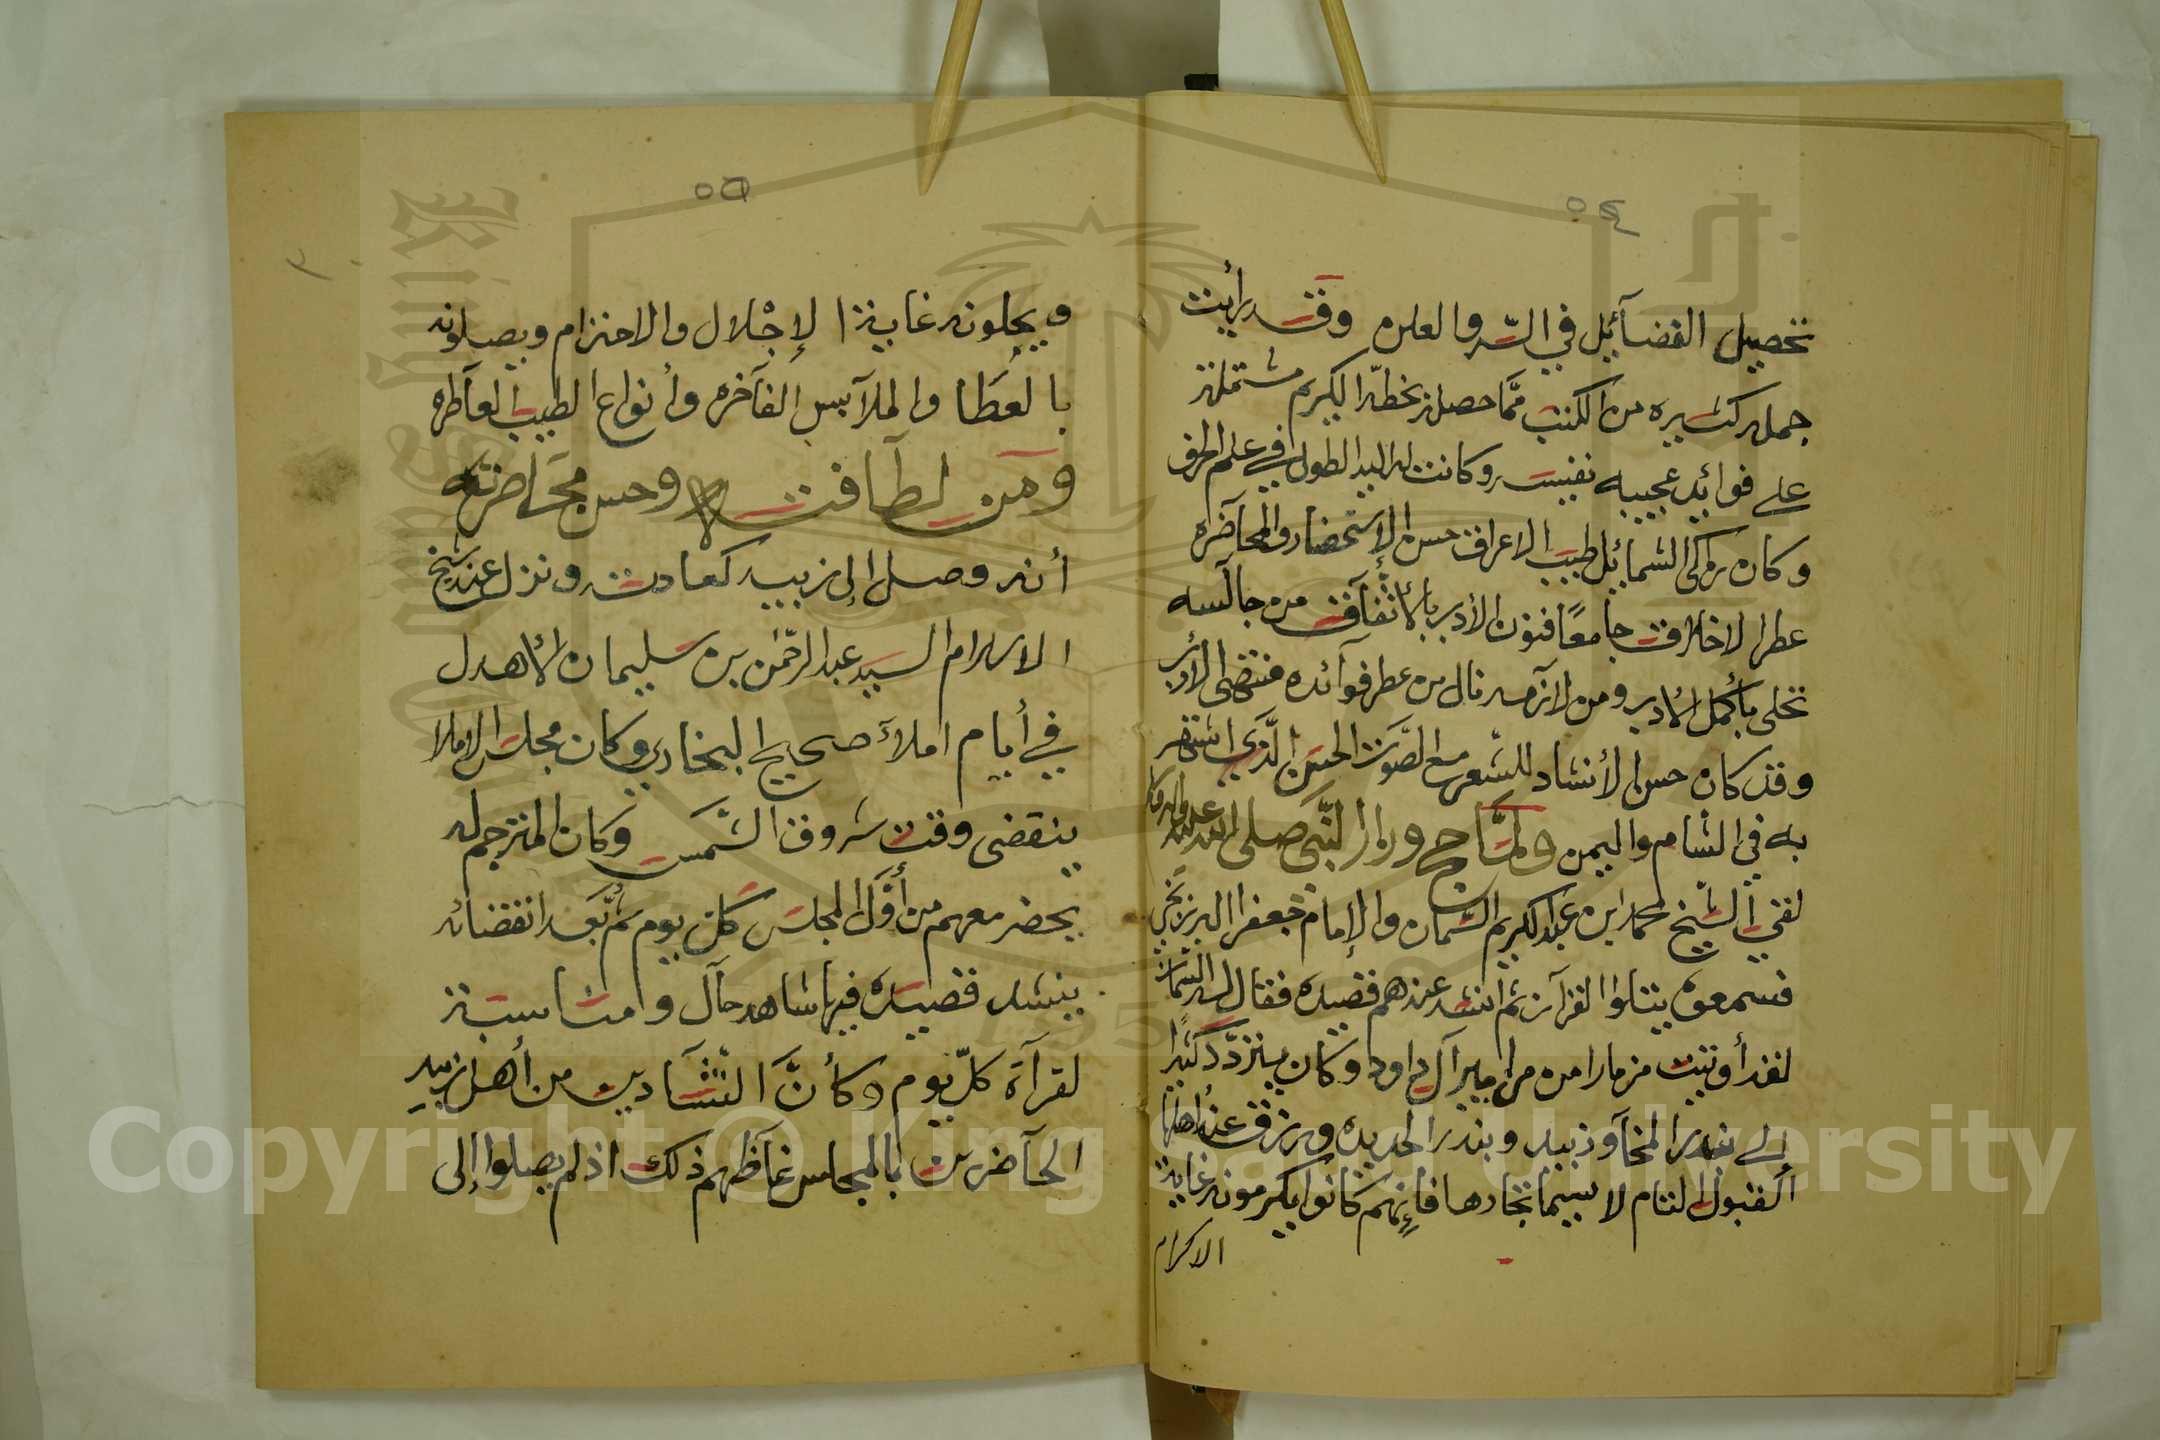 ٥٤
تحصيل الفضآئل في السّر والعلن وقد رأيت
جمله كثيره من الكتب ممَّا حصله بخطه الكريم مشتمله
على فوائد عجيبه نفيسه وكانت له اليد الطولى في علم الحرف
وكان زكى الشمائل طيب الاعراق حسن الإستحضار والمحآضره
عطر الاخلاق جامعًا فنون الأدب بالأتفآق من جالسه
تحلى بأكمل الأدب ومن لازمه نال من عطر فوآئده منتهى الادب
وقد كان حسن الأنشاد للشعر مع الصَّوت الحسن الَّذي اشتهر
به في الشام واليمن ولمَّا حج وزار النَّبى صلى الله عليه وآله وسلم
لقي الشيخ محمد ابن عبد الكريم السّمان والإمام جعفر البرزنجي
فسمعوه يتلوا القرآن ثم انشد عندهم قصيده فقال له السّمان
لقد أوتيت مزمارا من مزامير آل داود وكان يتردّد كثيرًا
إلى بندر المخآ وزبيد وبندر الحديده ورزق عند أهلها
القبول التام لا سيما تجارها فإنهم كانوا يكرمونه غاية
الاكرام
٥٥
٣٠
ويجلونه غاية الإجْلال والاحترام ويصلونه
بالعَطَا والملآبس الفآخره وأنواع الطيب العآطره
ومن لطآفته وحسن محَاضرته
أنه وصل إلى زبيد كعادته ونزل عند شيخ
الاسلام السيد عبد الرّحمٰن بن سليمان الأهدل
في أيام املآء صحيح البخاري وكان مجلس الاملا
ينقضى وقت شروق الشَّمس وكان المترجم له
يحضر معهم من أوَّل المجلس كل يوم ثمَّ بعد انقضائه
ينشد قصيده فيها شاهد حآل ومناسبة
لقرآة كلّ يوم وكأنَّ النّشَّادين من أهل زبيد
الحآضرين بالمجلس غآظهم ذلك اذ لم يصلوا إلى
Copyright © King Saud University